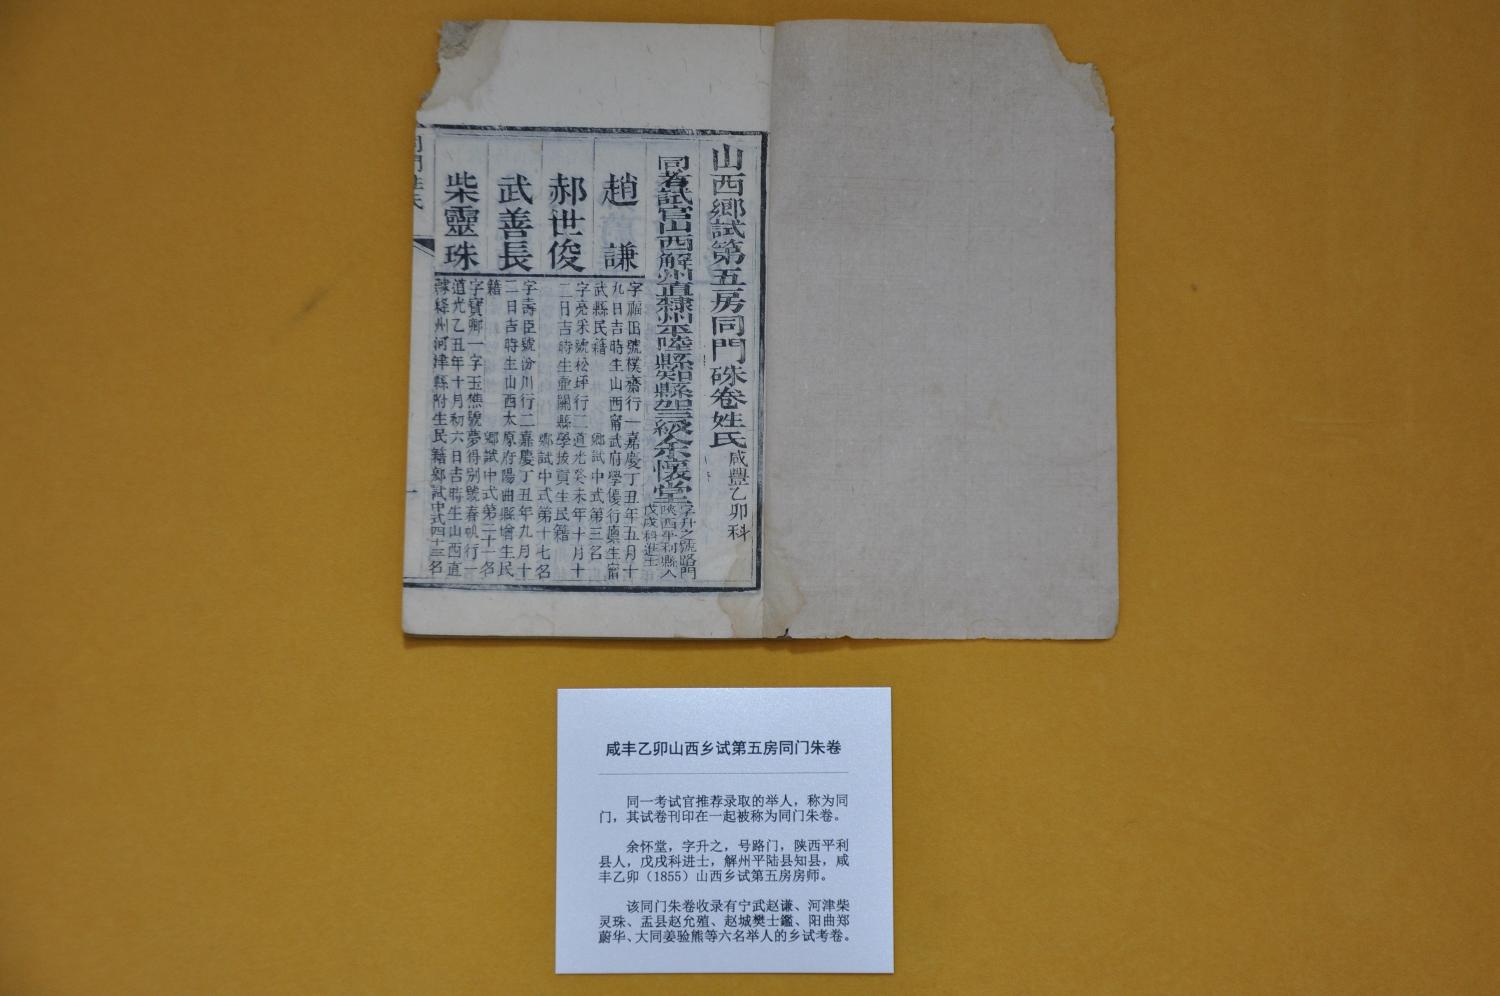 山西鄉試第五房同門硃卷姓氏咸豐乙卯科
同考試官山西解州直隸州平陸縣知縣加三級余懷堂
字升之號路門
陝西平利縣人
戊戌科進士
趙謙
字福田號樸齋行一嘉慶丁丑年五月十
九日吉時生山西甯武府學優行廩生甯
武縣民籍 鄉試中式第三名
郝世俊
字亮采號松坪行二道光癸未年十月十
二日吉時生壺關縣學拔貢生民籍
鄉試中式第十七名
武善長
字壽臣號汾川行二嘉慶丁丑年九月十
二日吉時生山西太原府陽曲縣增生民
籍 鄉試中式第二十一名
柴靈珠
字寶卿一字玉樵號夢得別號春帆行一
道光乙丑年十月初六日吉時生山西直
隸絳州河津縣附生民籍鄉試中式四十三名
一
咸丰乙卯山西乡试第五房同门朱卷
同一考试官推荐录取的举人，称为同
门，其试卷刊印在一起被称为同门朱卷。
余怀堂，字升之，号路门，陕西平利
县人，戊戌科进士，解州平陆县知县，咸
丰乙卯（1855）山西乡试第五房房师。
该同门朱卷收录有宁武赵谦、河津柴
灵珠、盂县赵允殖、赵城樊士鑑、阳曲郑
蔚华、大同姜验熊等六名举人的乡试考卷。